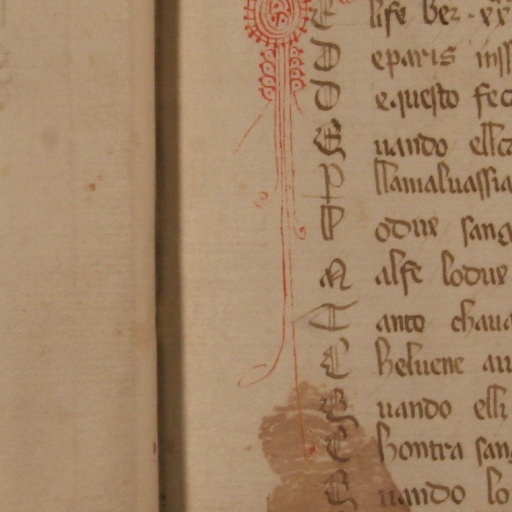 E life ber. xx
D eparis miss
D e questo fec
E uando ellca
P llamaluassia
P odue sang
N alse lodue
T anto chaua
C heluene au
E uando elli
C hontra sang
E uando lo